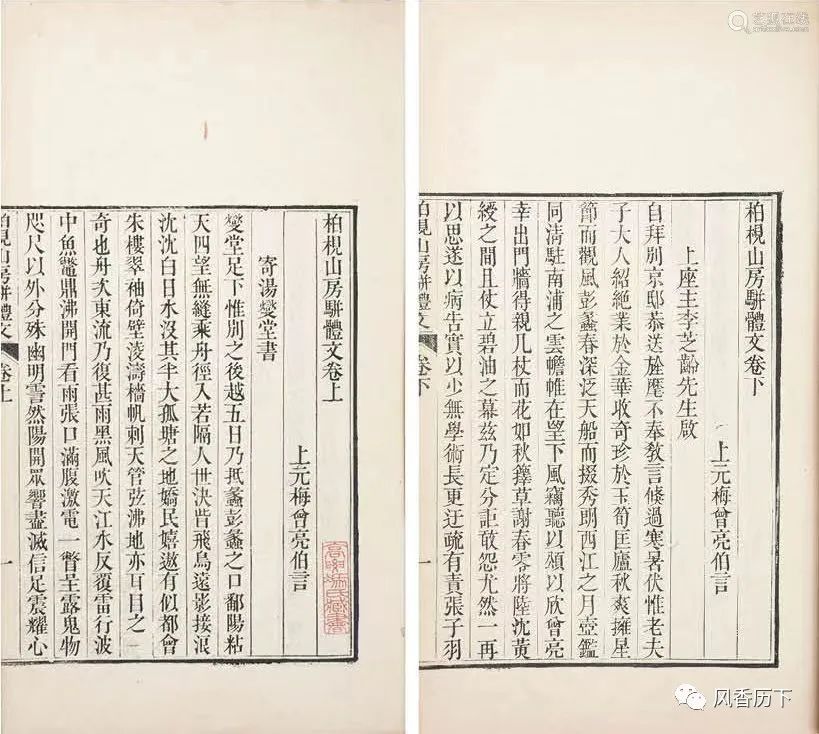 柏梘山房駢體文卷下
上元梅曾亮伯言
上座主李芝齡先生啟
自拜別京邸恭送旌麾不奉敎言倏過寒暑伏惟老夫
子大人紹絶業於金華收奇珍於玉筍匡廬秋爽擁星
節而觀風彭蠡春深泛天船而掇秀朗西江之月壺鑑
同淸駐南浦之雲幨帷在望下風竊聽以頌以欣曾亮
幸出門牆得親几杖而花如秋籜草謝春零將陸沈黃
綬之間且仗立碧油之幕茲乃定分詎敢怨尤然一再
以思遂以病告實以少無學術長更迂疏有責張子羽
柏梘山房駢體文
卷下
一
柏梘山房駢體文卷上
上元梅曾亮伯言
寄湯燮堂書
燮堂足下惟別之後越五日乃抵蠡彭蠡之口鄱陽粘
天四望無縫乘舟徑入若隔人世決眥飛鳥遠影接浪
沈沈白日水沒其半大孤塘之地嬌民嬉遨有似都會
朱樓翠袖倚壁淩濤檣帆刺天管弦沸地亦耳目之一
奇也舟次東流乃復甚雨黑風吹天江水反覆雷行波
中魚鼈鼎沸開門看雨張口滿腹激電一瞥呈露鬼物
咫尺以外分殊幽明霅然陽開眾響盡滅信足震耀心
柏梘山房駢體文
卷上
一
艺狐在线
风香历下